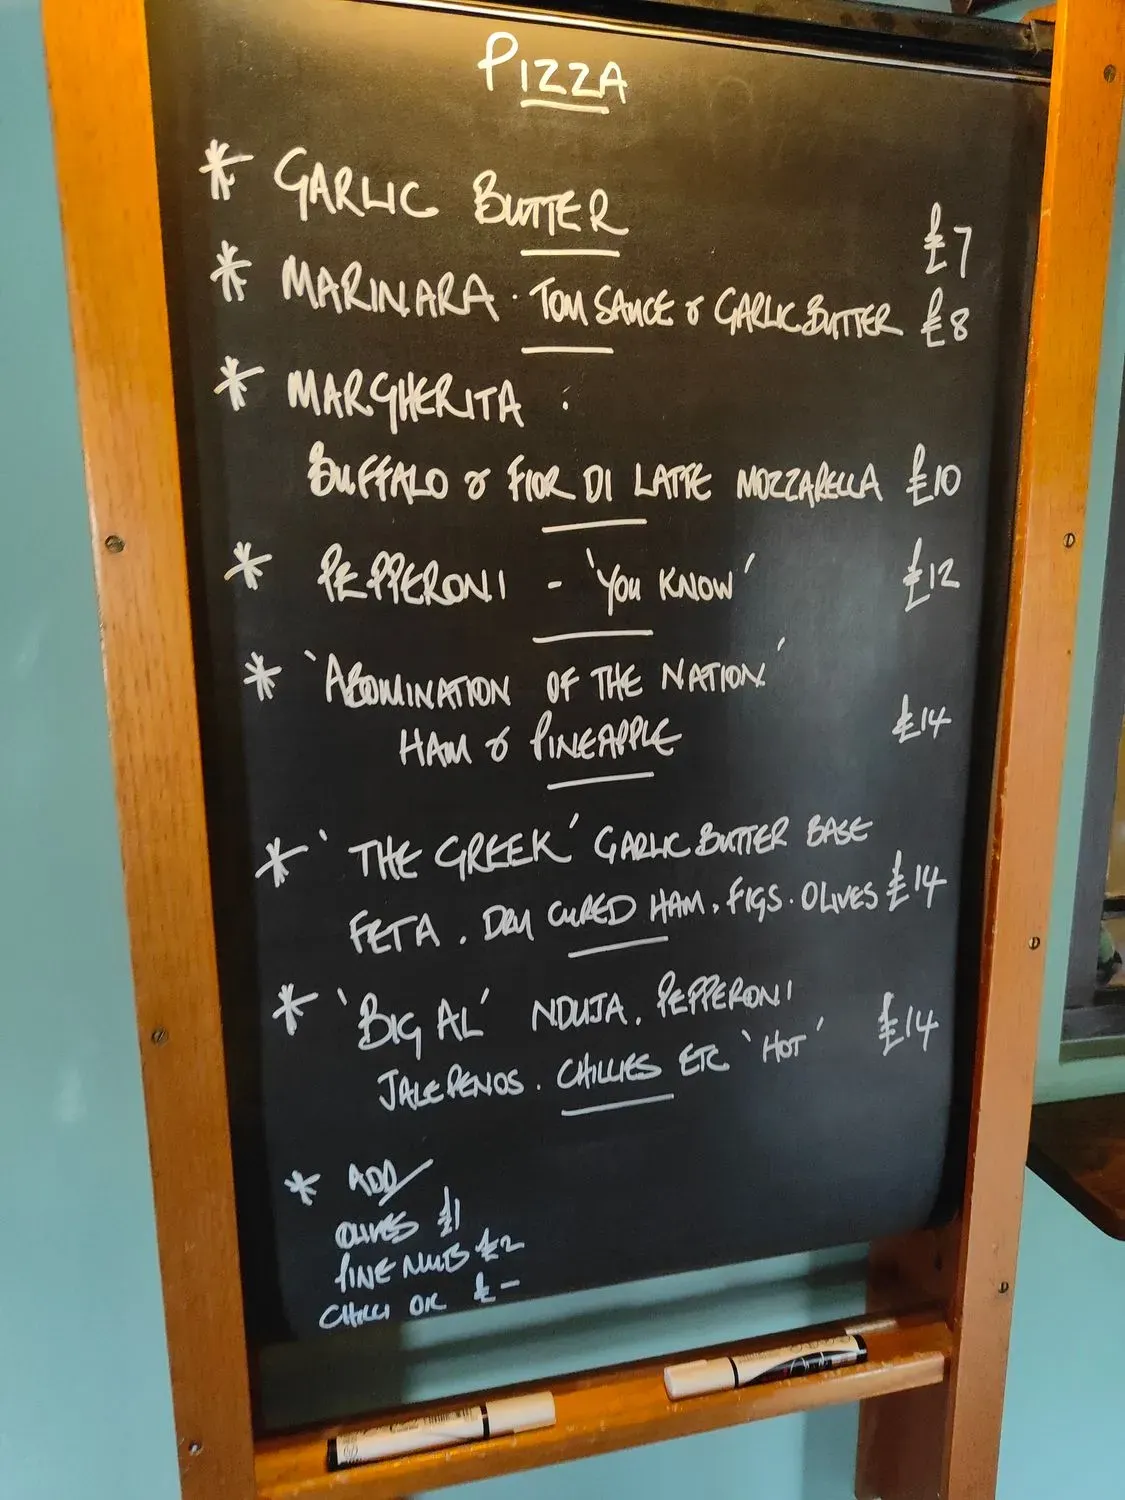 PIZZA
* GARLIC BUTTER £7
* MARINARA · TOM SAUCE & GARLIC BUTTER £8
* MARGHERITA :
BUFFALO & FIOR DI LATTE MOZZARELLA £10
* PEPPERONI - 'YOU KNOW' £12
* 'ABOMINATION OF THE NATION'
HAM & PINEAPPLE £14
* 'THE GREEK' GARLIC BUTTER BASE
FETA . DRY CURED HAM . FIGS . OLIVES £14
* 'BIG AL' NDUJA . PEPPERONI
JALEPENOS . CHILLIES ETC 'HOT' £14
* ADD
OLIVES £1
PINE NUTS £2
CHILLI OIL £-